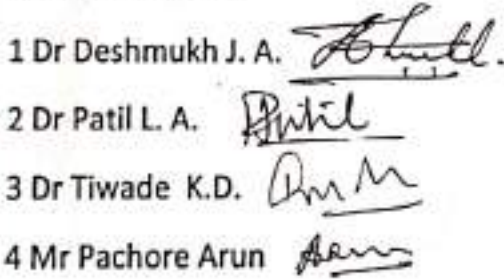 1 Dr Deshmukh J. A.
2 Dr Patil L. A.
3 Dr Tiwade K.D.
4 Mr Pachore Arun